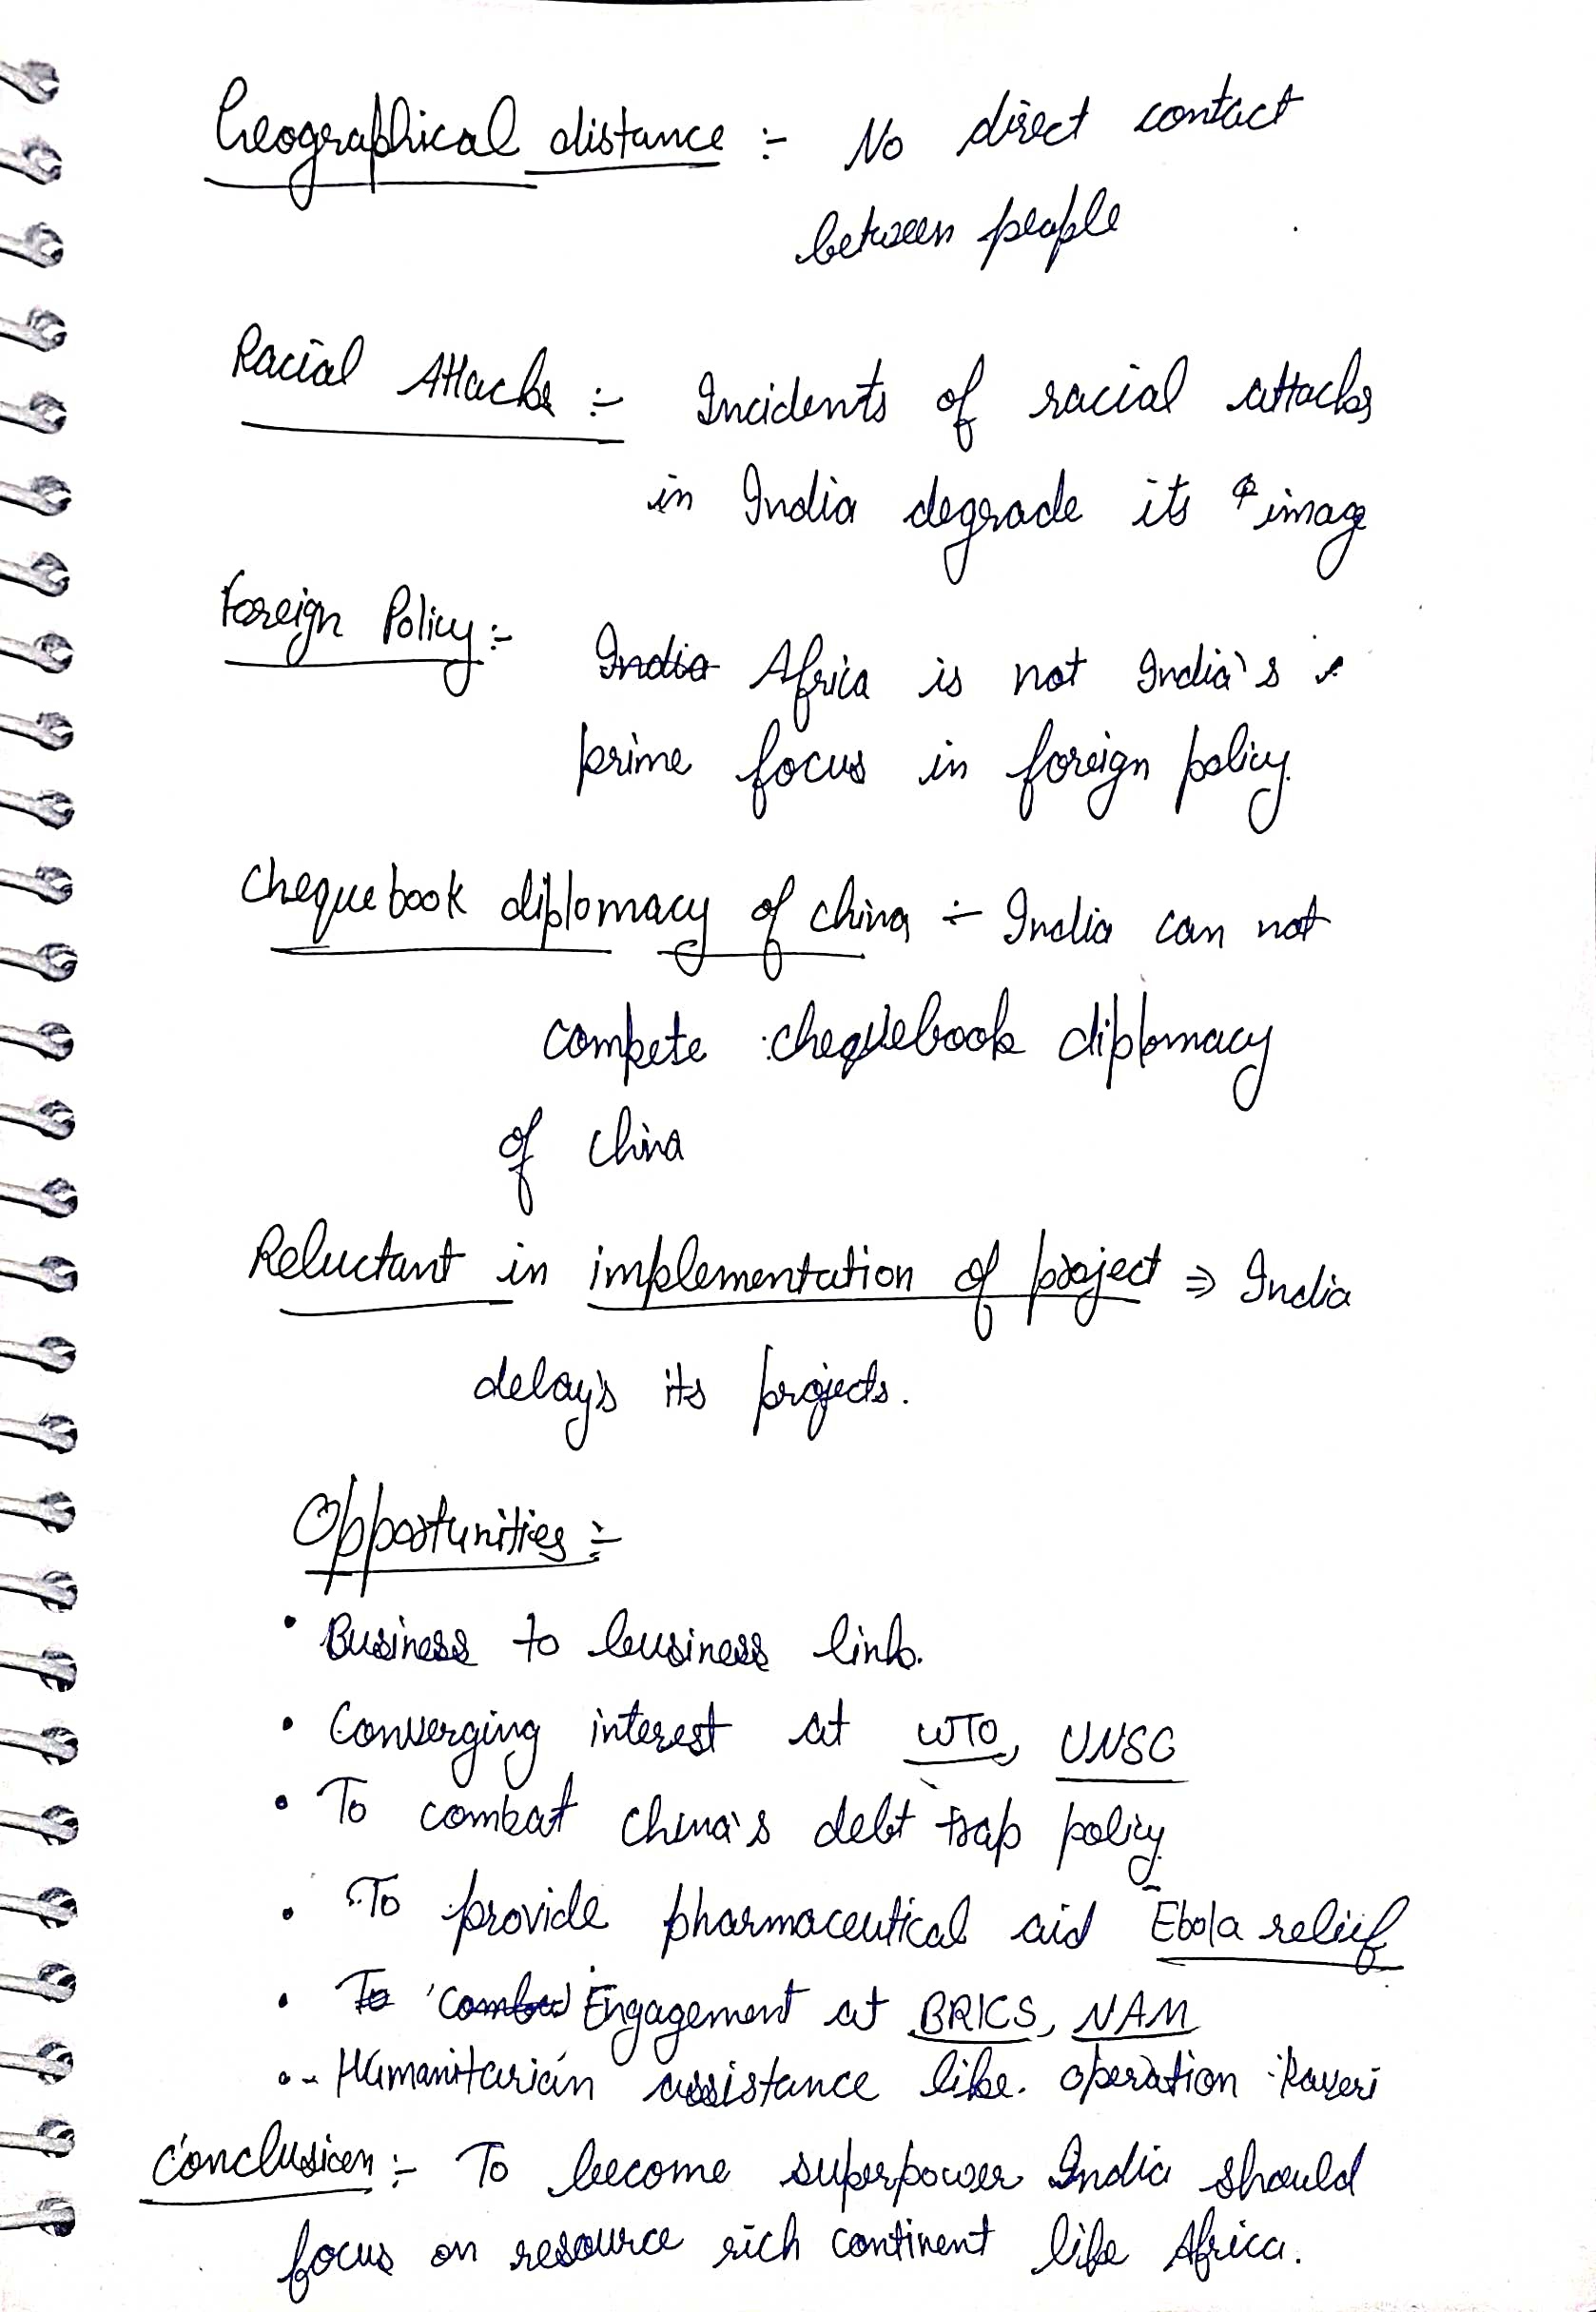 Geographical distance :- No direct contact
between people
Racial Attacks :- Incidents of racial attacks
in India degrade its image
Foreign Policy :- India Africa is not India's
prime focus in foreign policy.
Chequebook diplomacy of china :- India can not
compete chequebook diplomacy
of china
Reluctant in implementation of project ⇒ India
delay's its projects.
Opportunities :-
• Business to business link.
• Converging interest at WTO, UNSC
• To combat china's debt trap policy
• To provide pharmaceutical aid Ebola relief
• To Engagement at BRICS, NAM
• Humanitarian assistance like operation Kaveri
Conclusion :- To become superpower India should
focus on resource rich continent like Africa.